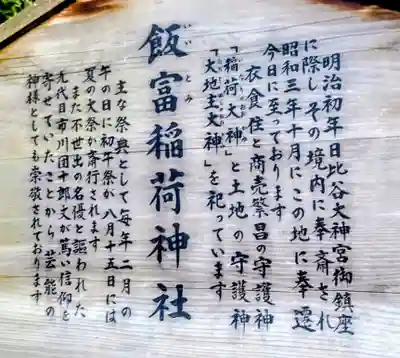 飯富稲荷神社
いいとみ
明治初年日比谷大神宮御鎮座
に際しその境内に奉斎され
昭和三年十月にこの地に奉遷
今日に至っております
衣食住と商売繁昌の守護神
「稲荷大神」と土地の守護神
「大地主大神」を祀っています
主な祭典として毎年二月の
午の日に初午祭が八月十五日には
夏の大祭が斎行されます
また不世出の名優と謳われた
九代目市川団十郎丈が篤い信仰を
寄せていたことから芸能の
神様としても崇敬されております